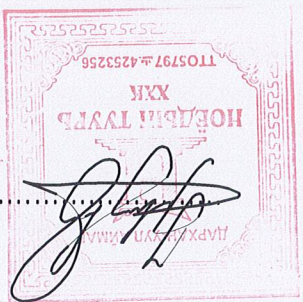 ДАРХАН-УУЛ АЙМАГ
НОЁДЫН ТУУРЬ
ХХК
4253256